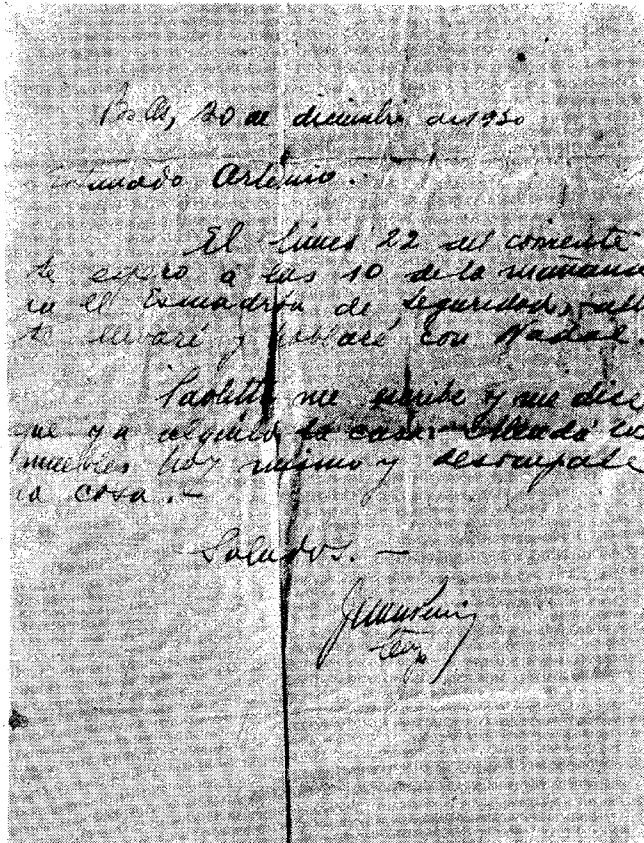 Bs As, 20 de diciembre de 1930
Estimado Artemio.-
El lunes 22 del corriente
te espero a las 10 de la mañana
en el Escuadrón de Seguridad, allí
te llevaré y hablaré con
Paoletti me escribe y me dice
que ya alquiló la casa.- los
muebles hoy mismo y desocupale
la casa.-
Saludos.-